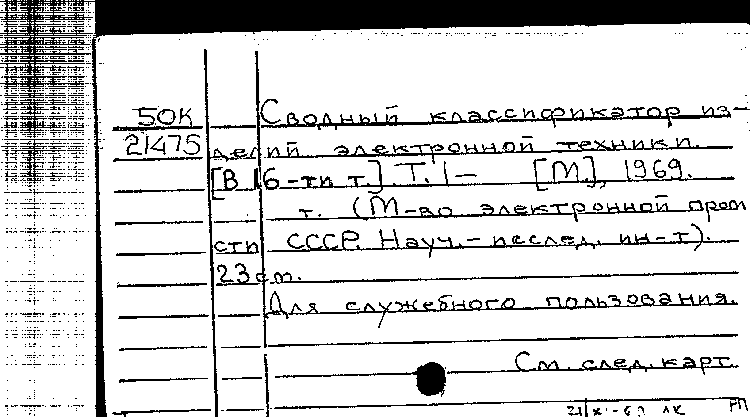 50К
21475
Сводный классификатор из-
делий электронной техники.
[В 16-ти т.]. Т. 1- [М], 1969.
т. (М-во электронной пром
сти СССР. Науч.-исслед. ин-т).
23 см.
Для служебного пользования.
См. след. карт.